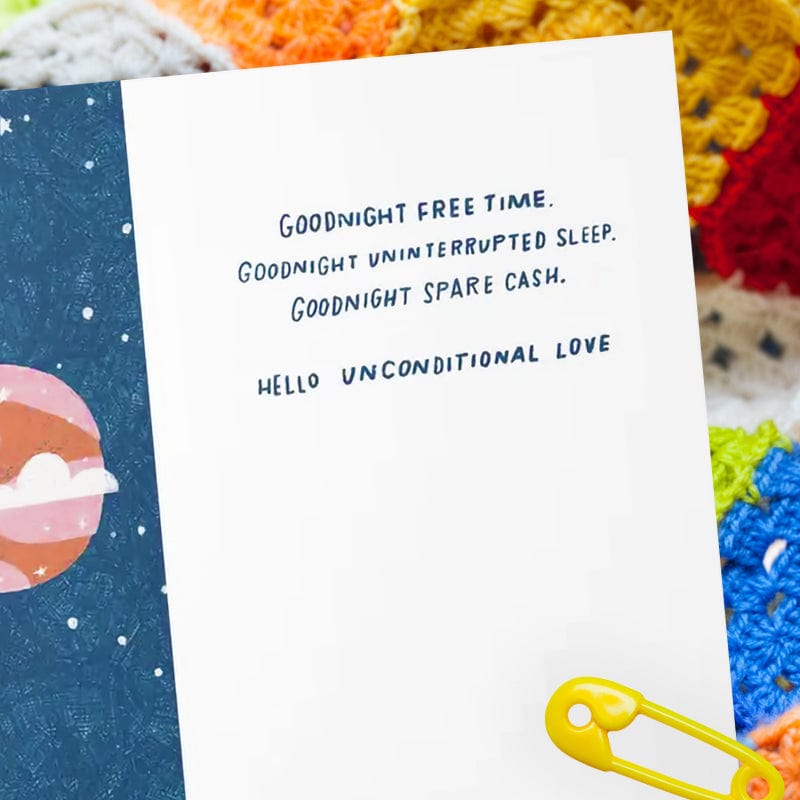 GOODNIGHT FREE TIME.
GOODNIGHT UNINTERRUPTED SLEEP.
GOODNIGHT SPARE CASH.
HELLO UNCONDITIONAL LOVE